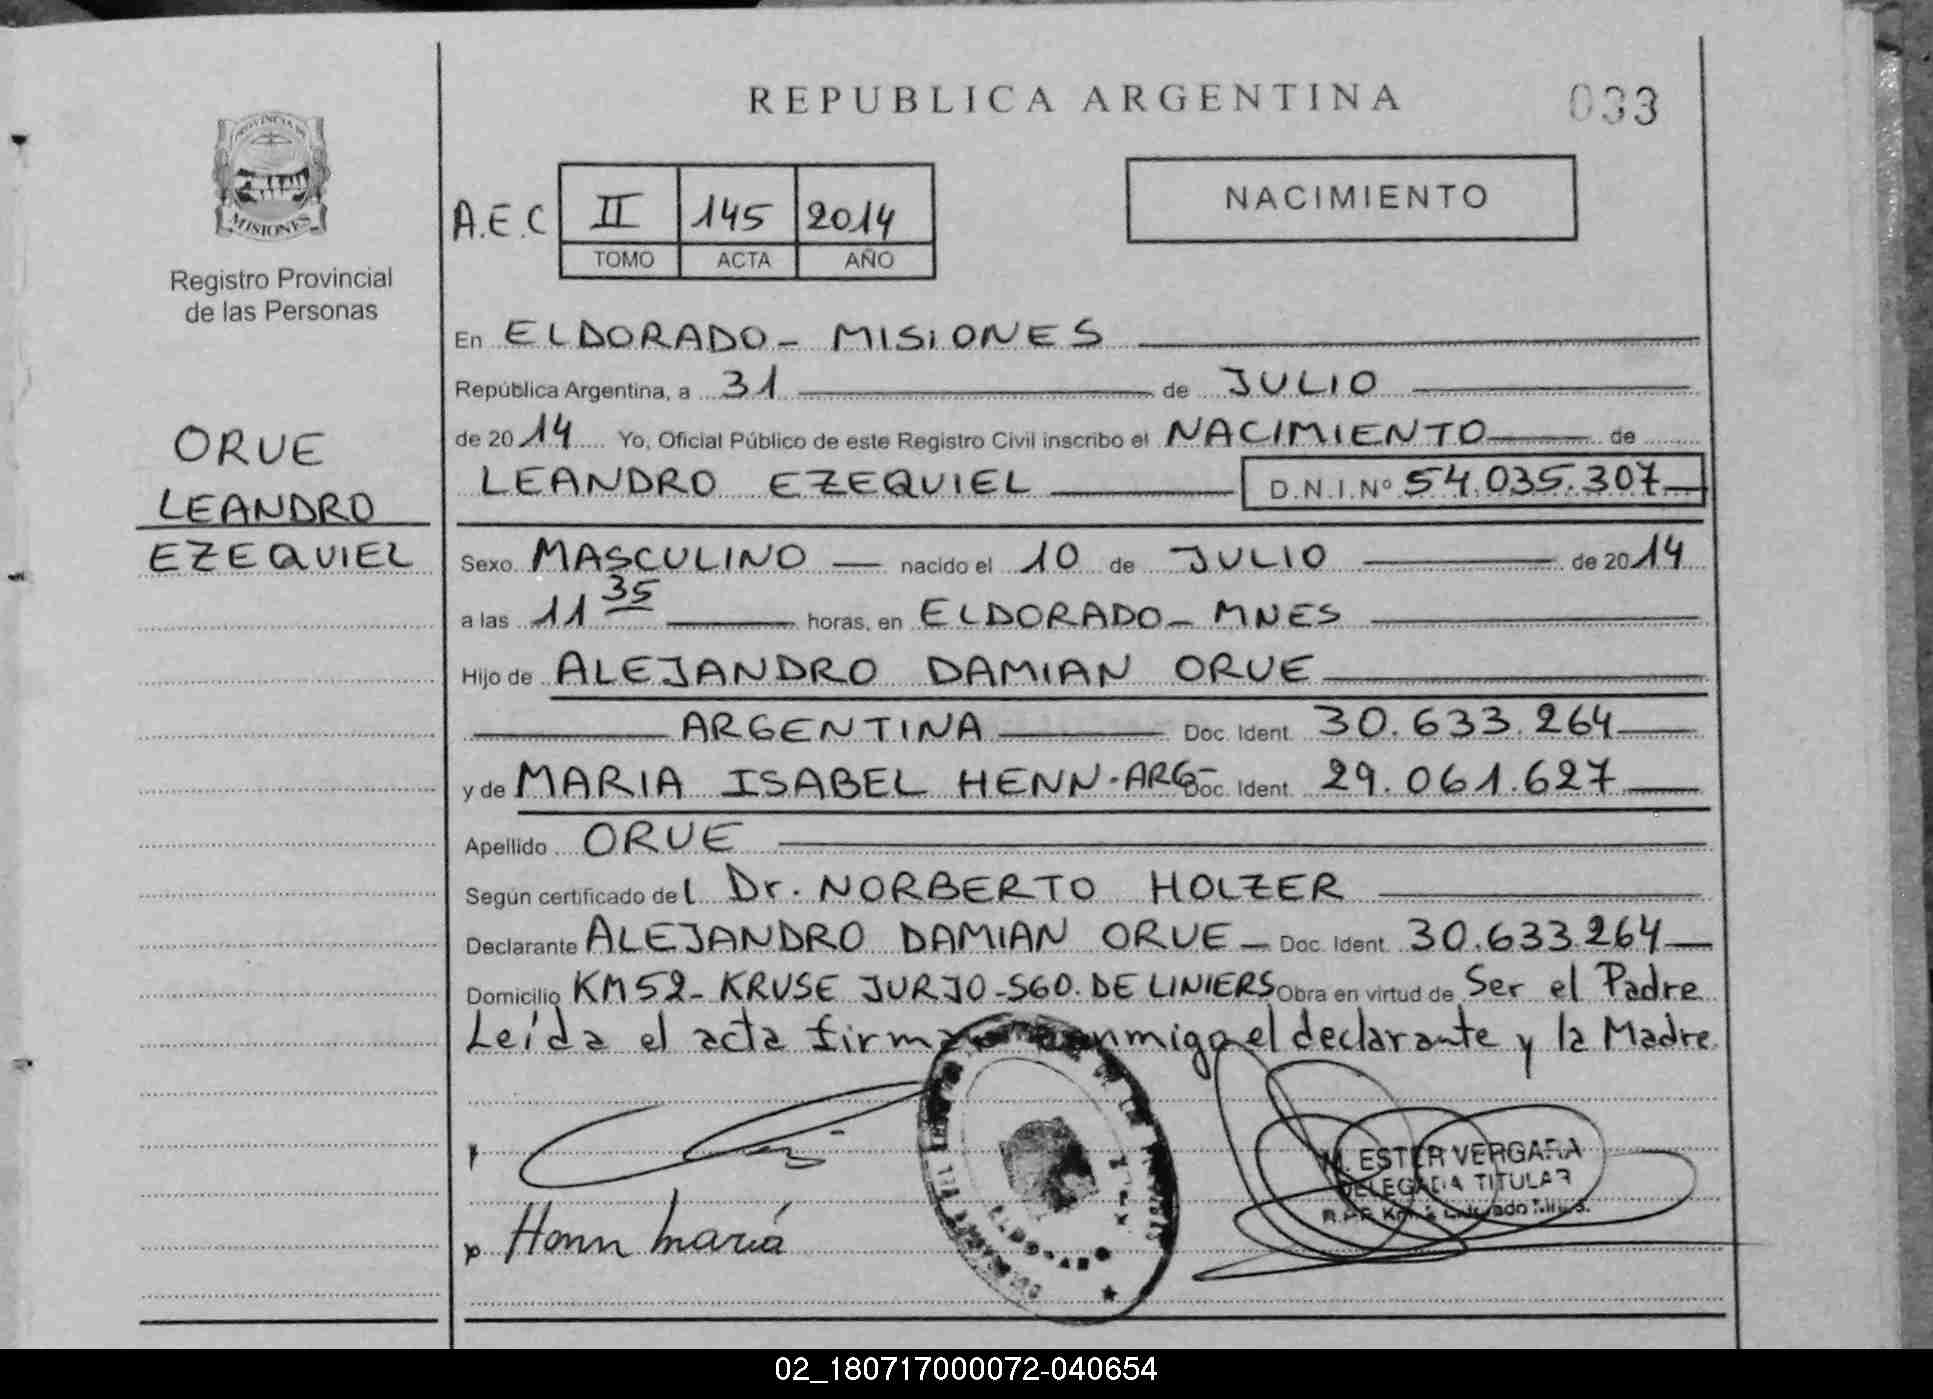 REPUBLICA ARGENTINA
033
PROVINCIA DE
MISIONES
Registro Provincial
de las Personas
A.E.C II 145 2014
TOMO ACTA AÑO
NACIMIENTO
ORUE
LEANDRO
EZEQUIEL
En ELDORADO - MISIONES
República Argentina, a 31 de JULIO
de 2014 Yo, Oficial Público de este Registro Civil inscribo el NACIMIENTO de
LEANDRO EZEQUIEL D.N.I.Nº 54.035.307
Sexo MASCULINO nacido el 10 de JULIO de 2014
a las 11 35 horas, en ELDORADO - MNES
Hijo de ALEJANDRO DAMIAN ORUE
ARGENTINA Doc. Ident. 30.633.264
y de MARIA ISABEL HENN - ARG- Doc. Ident. 29.061.627
Apellido ORUE
Según certificado del Dr. NORBERTO HOLZER
Declarante ALEJANDRO DAMIAN ORUE Doc. Ident. 30.633.264
Domicilio KM 52 - KRUSE JURJO - SGO. DE LINIERS Obra en virtud de Ser el Padre
Leída el acta firma conmigo el declarante y la Madre
Henn María
M. ESTER VERGARA
DELEGADA TITULAR
ELDORADO
02_180717000072-040654